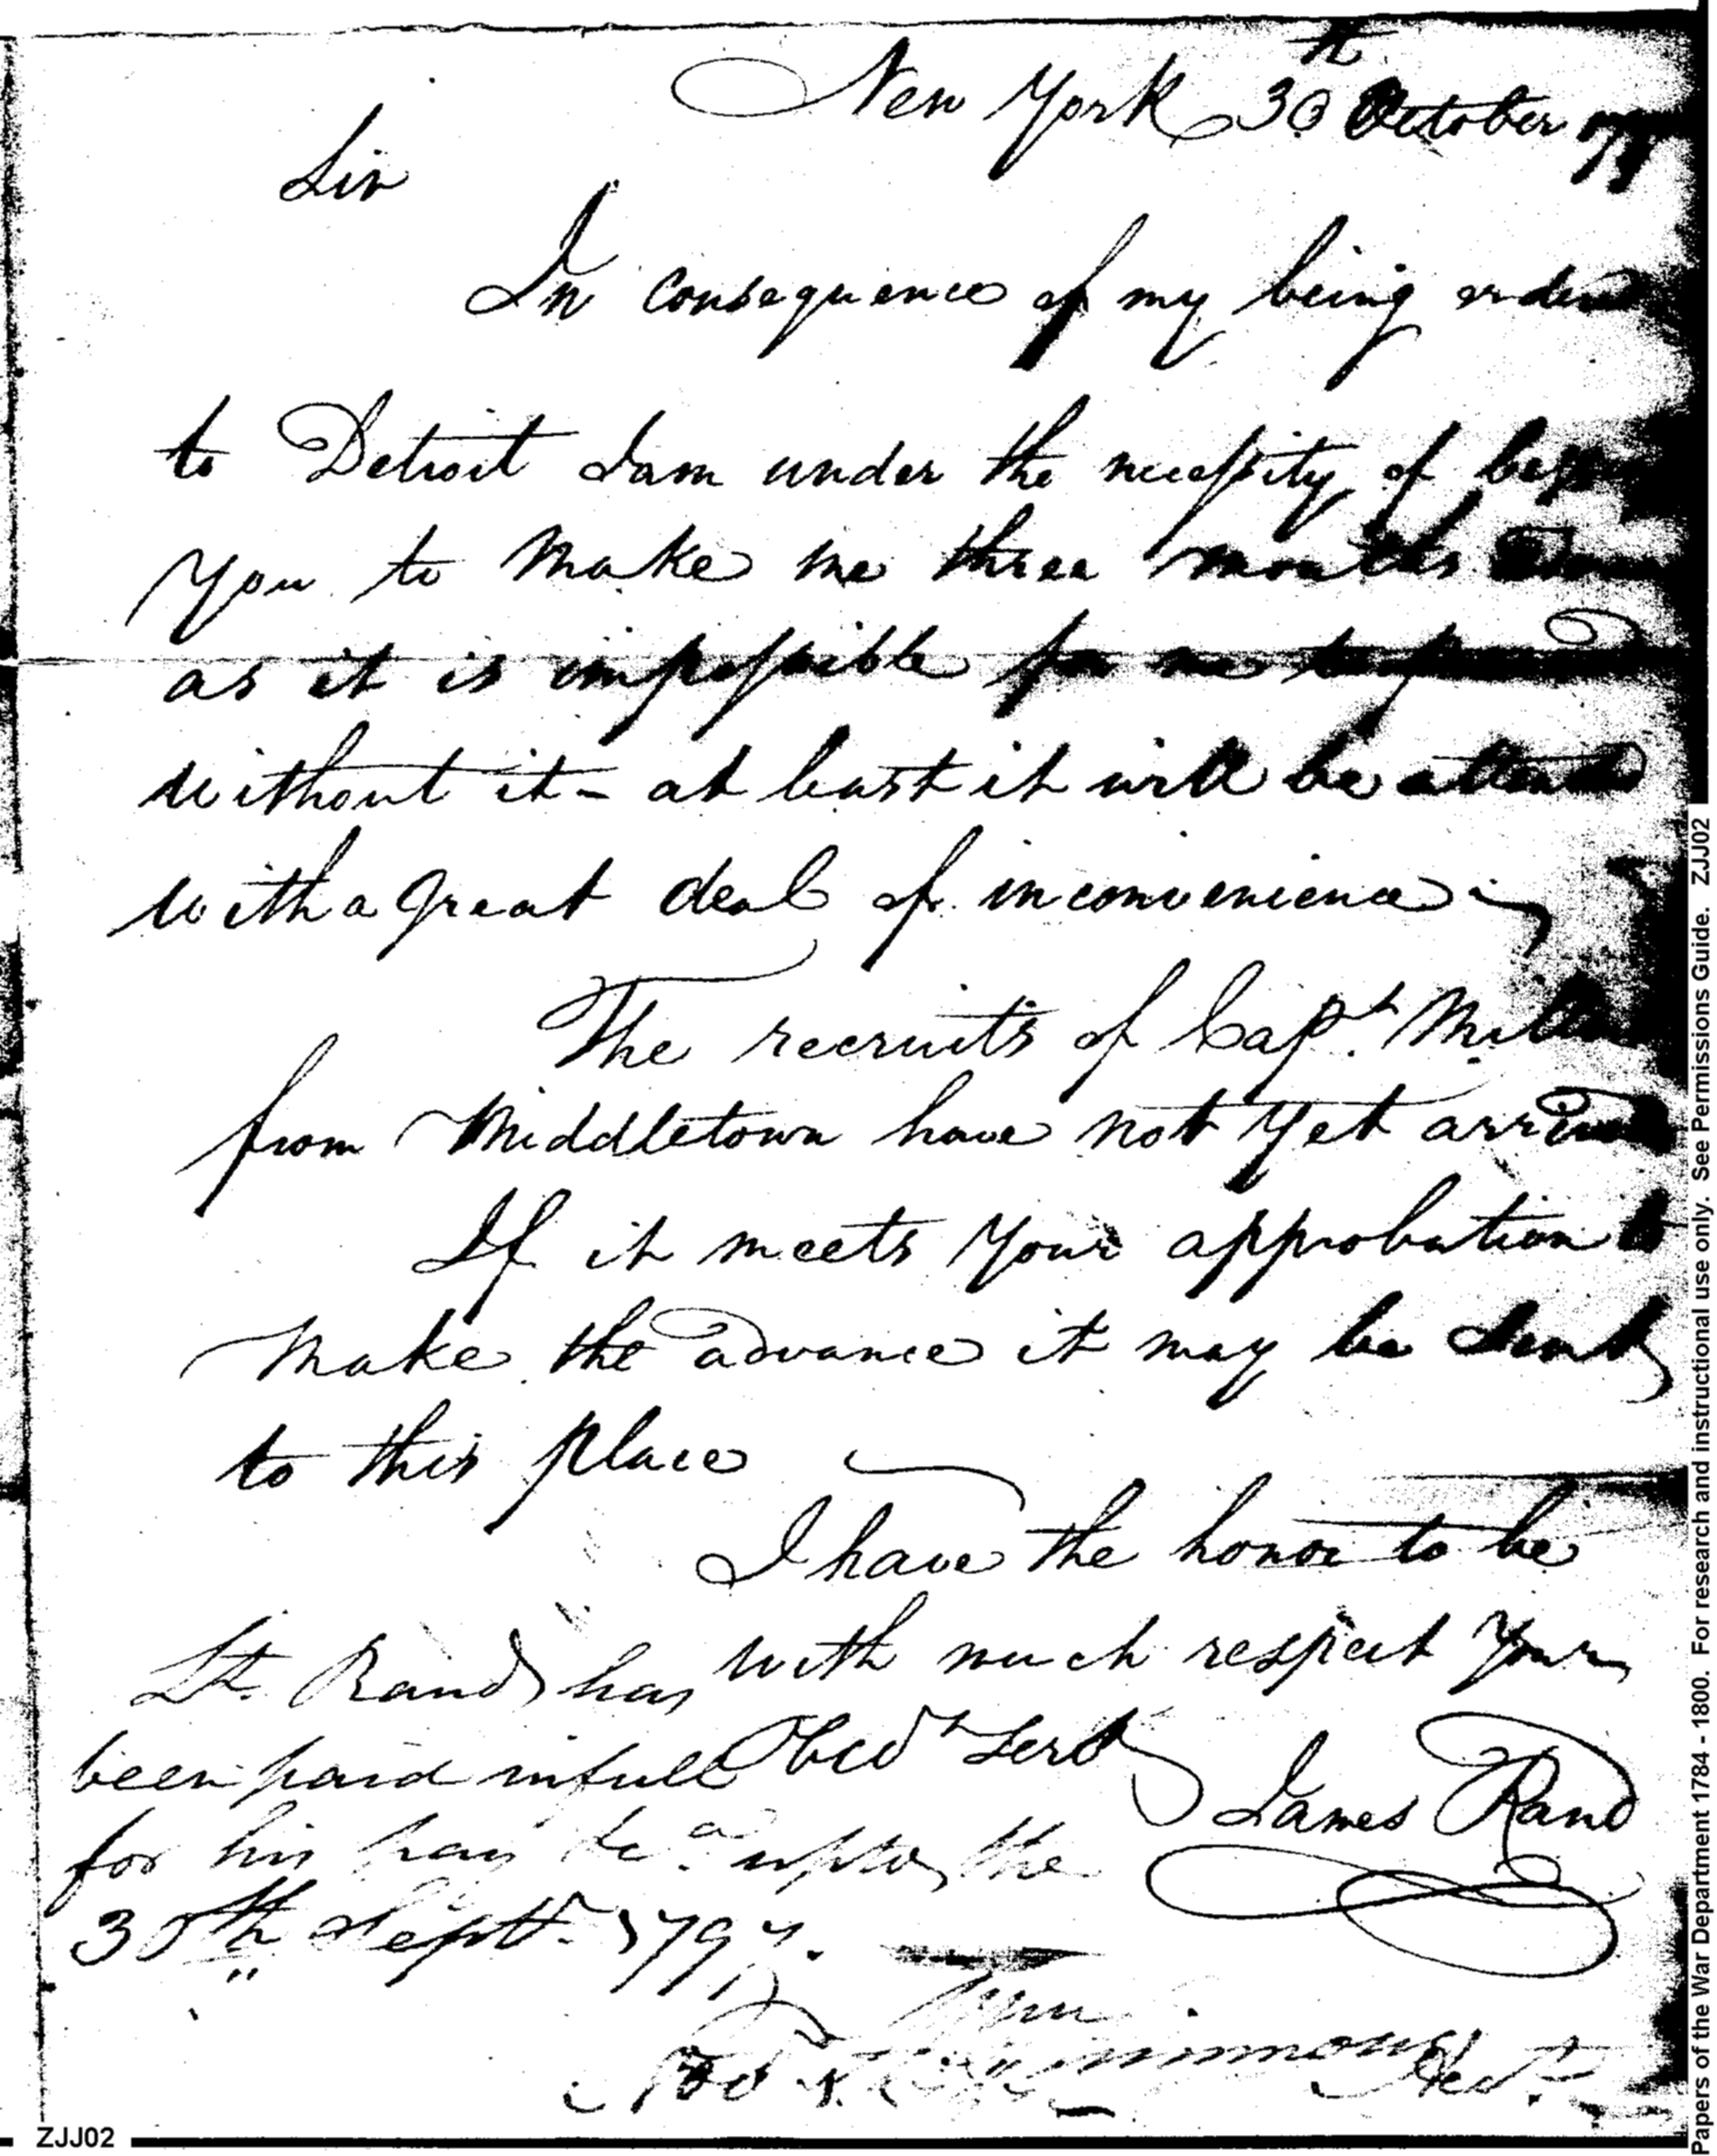 New York 30th October
Sir
In consequence of my being ordered
to Detroit I am under the necessity of
you to make me three months
as it is impossible for me to
without it - at least it will be attended
with a great deal of inconvenience -
The recruits of Capt. Miller
from Middletown have not yet arrived
If it meets your approbation to
make the advance it may be sent
to this place
I have the honor to be
with much respect your
Obedt Servt
James Rand
Lt. Rand has
been paid in full
for his pay &ca. upto the
30th Septr. 1797.
Wm Simmons
Acct.
ZJJ02
Papers of the War Department 1784 - 1800. For research and instructional use only. See Permissions Guide. ZJJ02